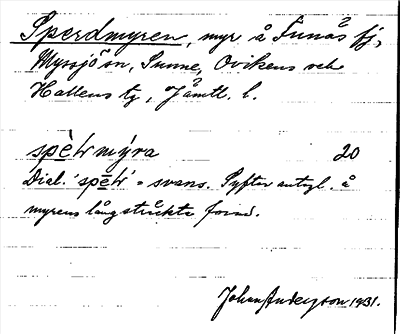 Sperdmyren, myr å Funäs fj,
Myssjö sn, Sunne, Ovikens och
Hallens tg, Jämtl. l.
spèḷr mýra 20
Dial. 'spēḷr' = svans. Syftar antagl. å
myrens långsträckta form.
Johan Anderzon 1931.